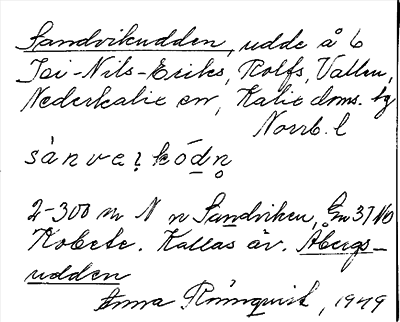 Sandvikudden, udde å 6
Joi-Nils-Eriks, Rolfs, Vallen,
Nederkalix sn, Kalix doms. tg
Norrb. l
2-300 m N n Sandviken, Em 37 NO
Kobete. Kallas äv. Åbergs-
udden
Anna Rönnquist, 1949